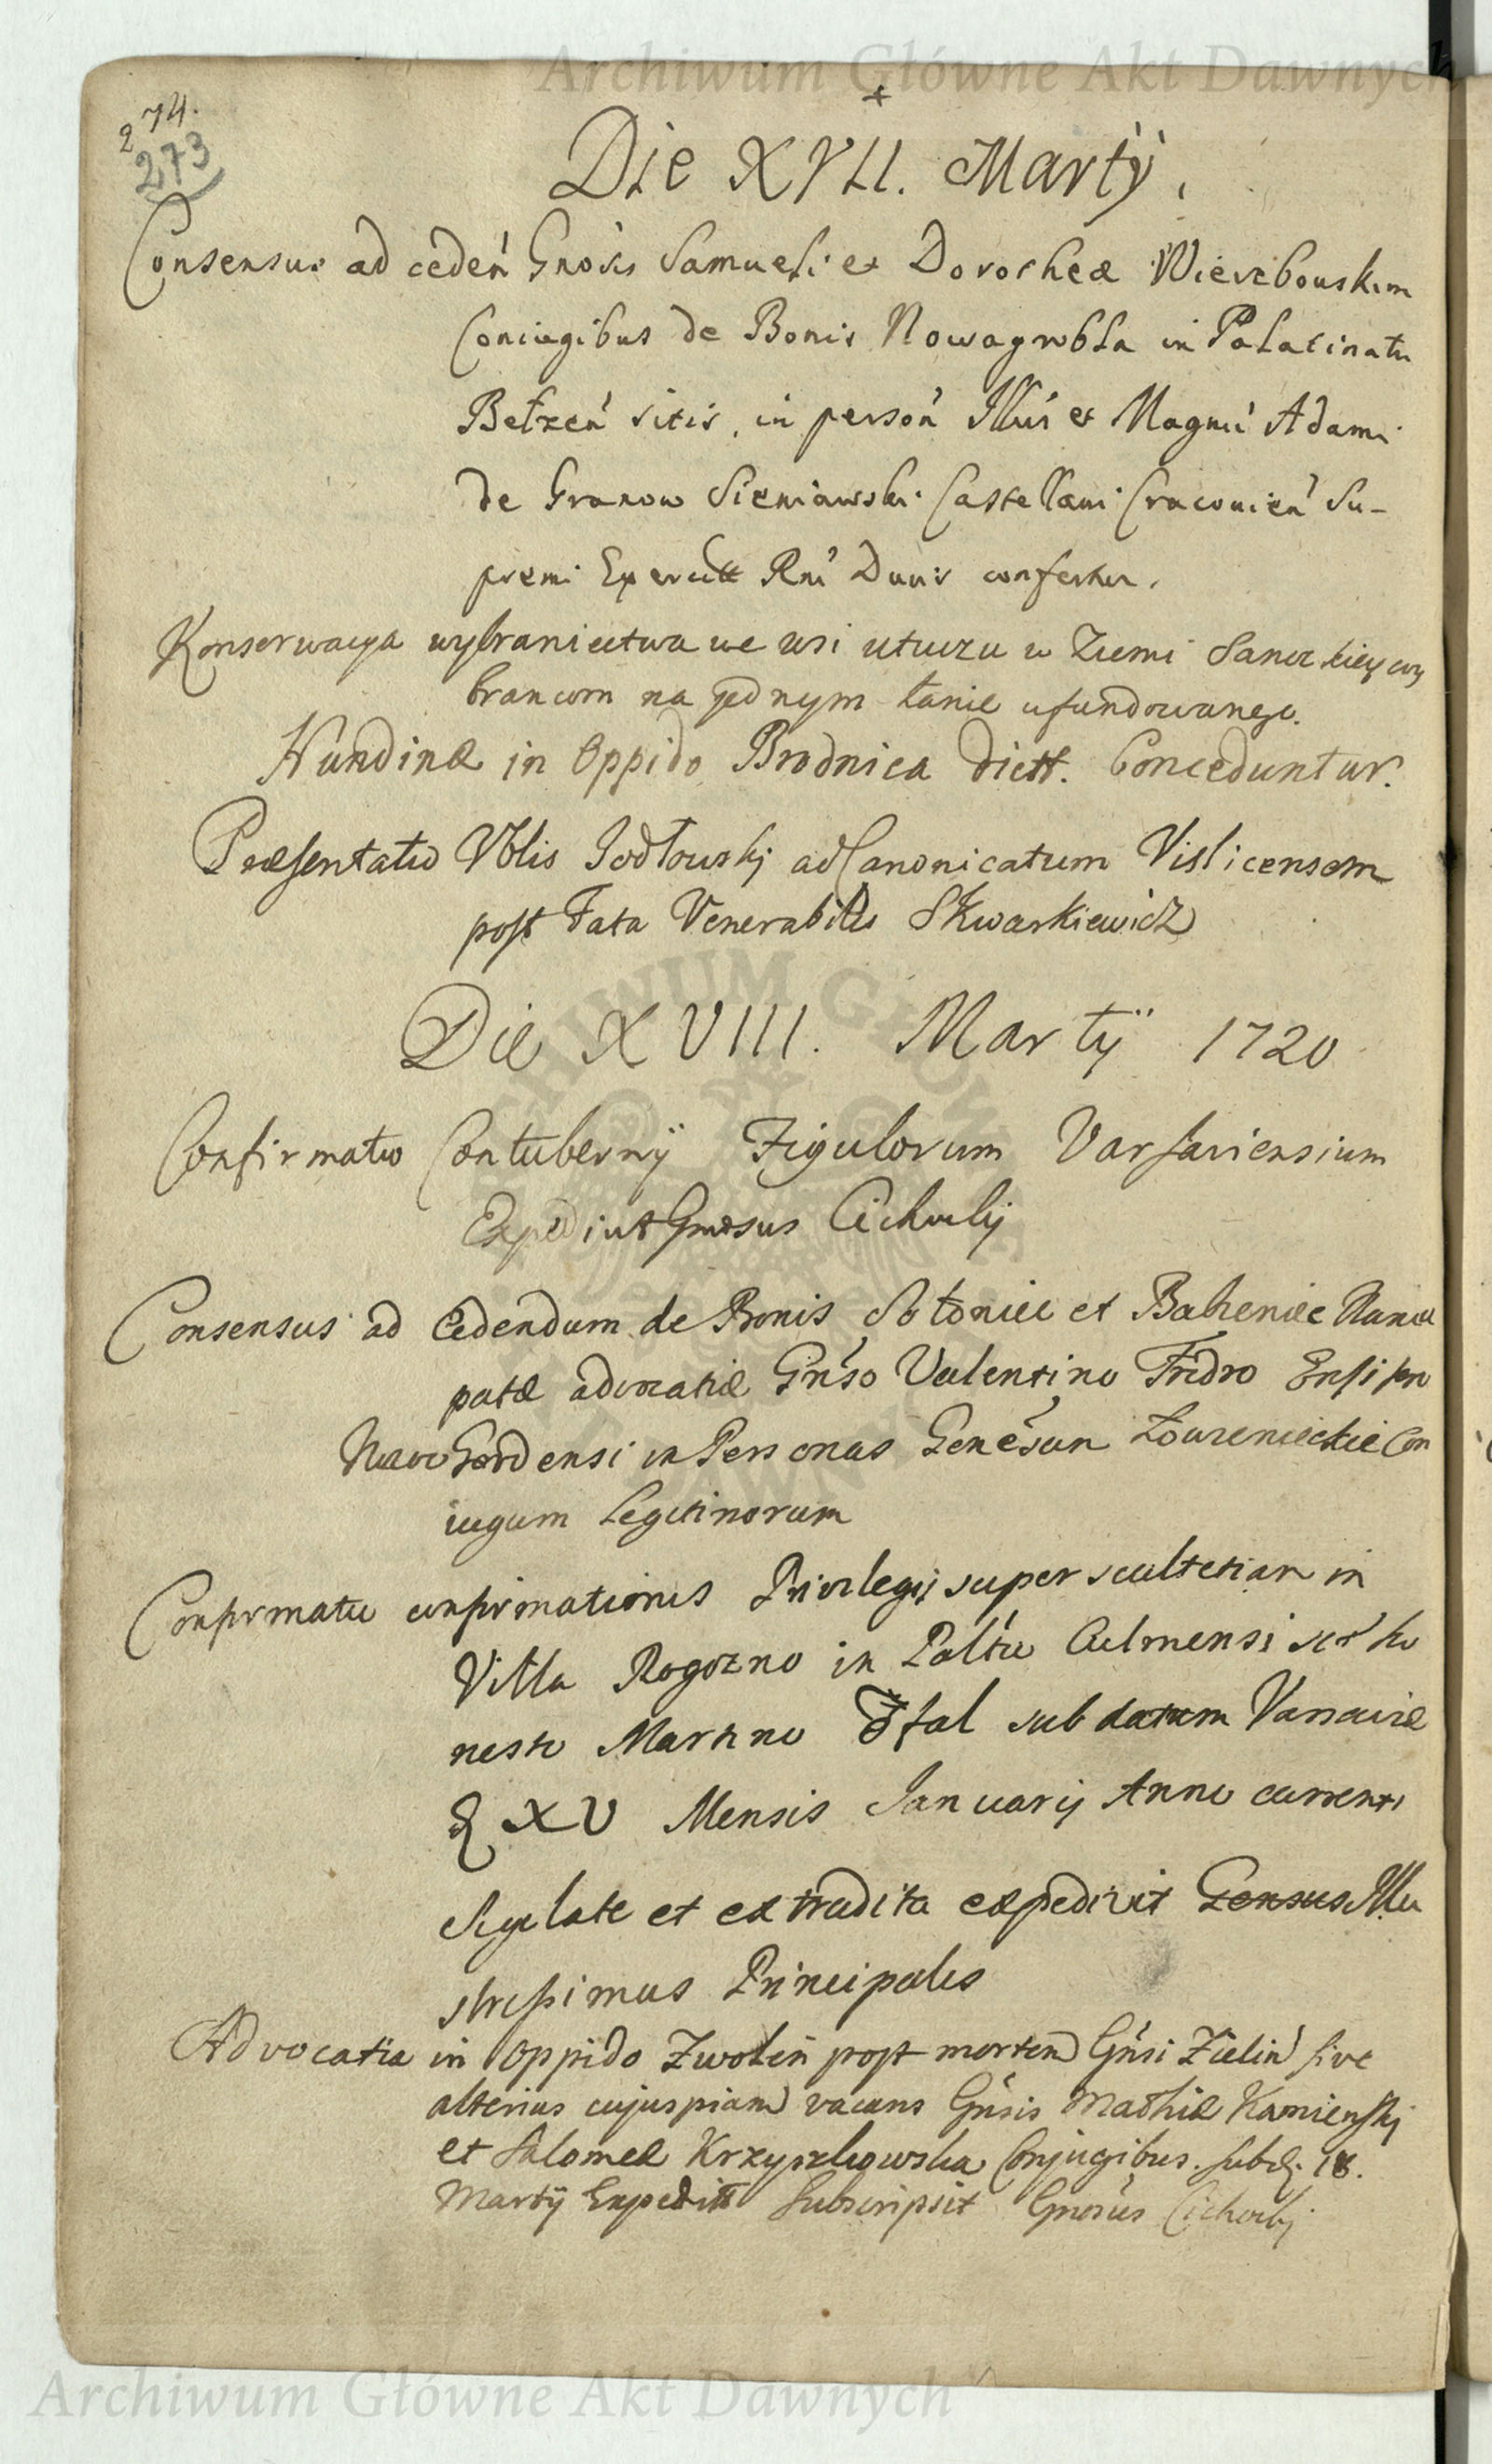 Archiwum Główne Akt Dawnych
274.
273
Die XVII. Martij.
Consensus ad ceden Gnosis Samueli et Dorotheæ Wierzbouskim
Coniugibus de Bonis Nowagrobla in Palatinatu
Bełzen sitis, in person Illris et Magnci Adami
de Granow Sieniawski Castellani Cracouien Su-
premi Exercitt Rni Ducis confertur.
Konserwacya wybraniectwa we wsi utwzu w Ziemi Sanockiey wy
brancom na jednym łanie ufundowanego.
Nundinæ in Oppido Brodnica dictt. Conceduntur.
Præsentatio Vblis Jodłouskj ad Canonicatum Vislicensem
post Fata Venerabilis Skwarkiewicz
Die XVIII. Martij 1720
Confirmatio Contubernij Figulorum Varsaviensium
Expediut Gnosus Cichockj
Consensus ad Cedendum de Bonis Sołonice et Advocatiæ
patæ advocatiæ Gnso Valentino Fredro Ensifero
Novo Grodensi in Personas Genesun Con
iugum Legitinorum
Confirmatio confirmationis Privilegij super scultetiam in
Villa Rogozno in Paltu Culmensi sito ho
nesto Martino Sfal sub datum Varsaviæ
D XV Mensis Januarij Anno currenti
Sigilate et extradita expedivit Gensus Illu
strissimus Principalis
Advocatia in Oppido Zwoleń post mortem Gnsi Zielin sive
alterius cujuspiam vacans Gnsis Mathiæ Kamienskj
et Salomeæ Krzyszkowska Conjugibus. sub d. 18.
Martij Expeditt Subscripsit Gnosus Cichockj
Archiwum Główne Akt Dawnych